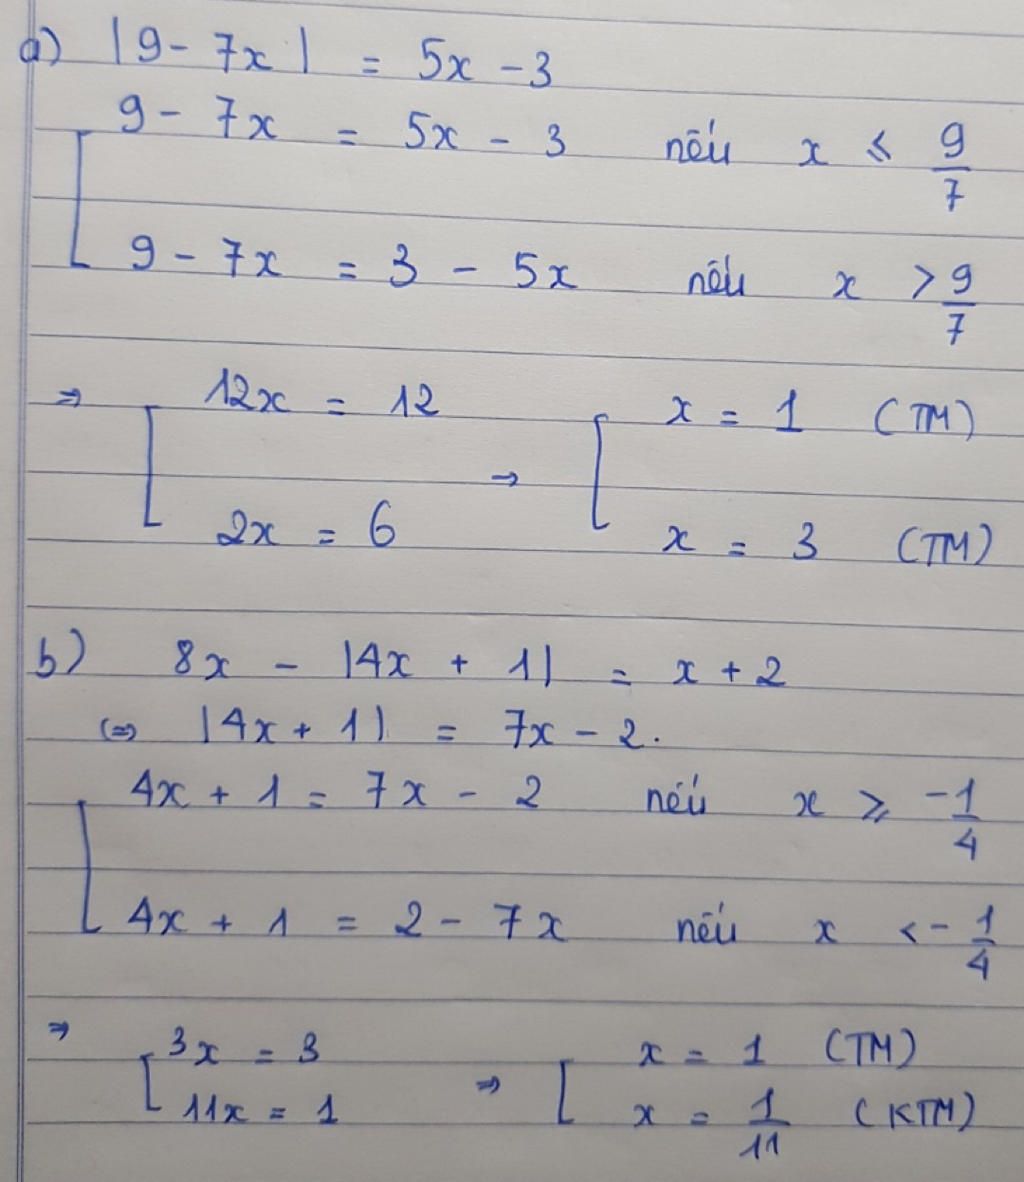 a) |9 - 7x| = 5x - 3
9 - 7x = 5x - 3 nếu x ≤ 9/7
9 - 7x = 3 - 5x nếu x > 9/7
⇒ [ 12x = 12 ⇒ [ x = 1 (TM)
2x = 6 x = 3 (TM)
b) 8x - |4x + 1| = x + 2
⇔ |4x + 1| = 7x - 2.
4x + 1 = 7x - 2 nếu x ≥ -1/4
4x + 1 = 2 - 7x nếu x < -1/4
⇒ [ 3x = 3 ⇒ [ x = 1 (TM)
11x = 1 x = 1/11 (KTM)